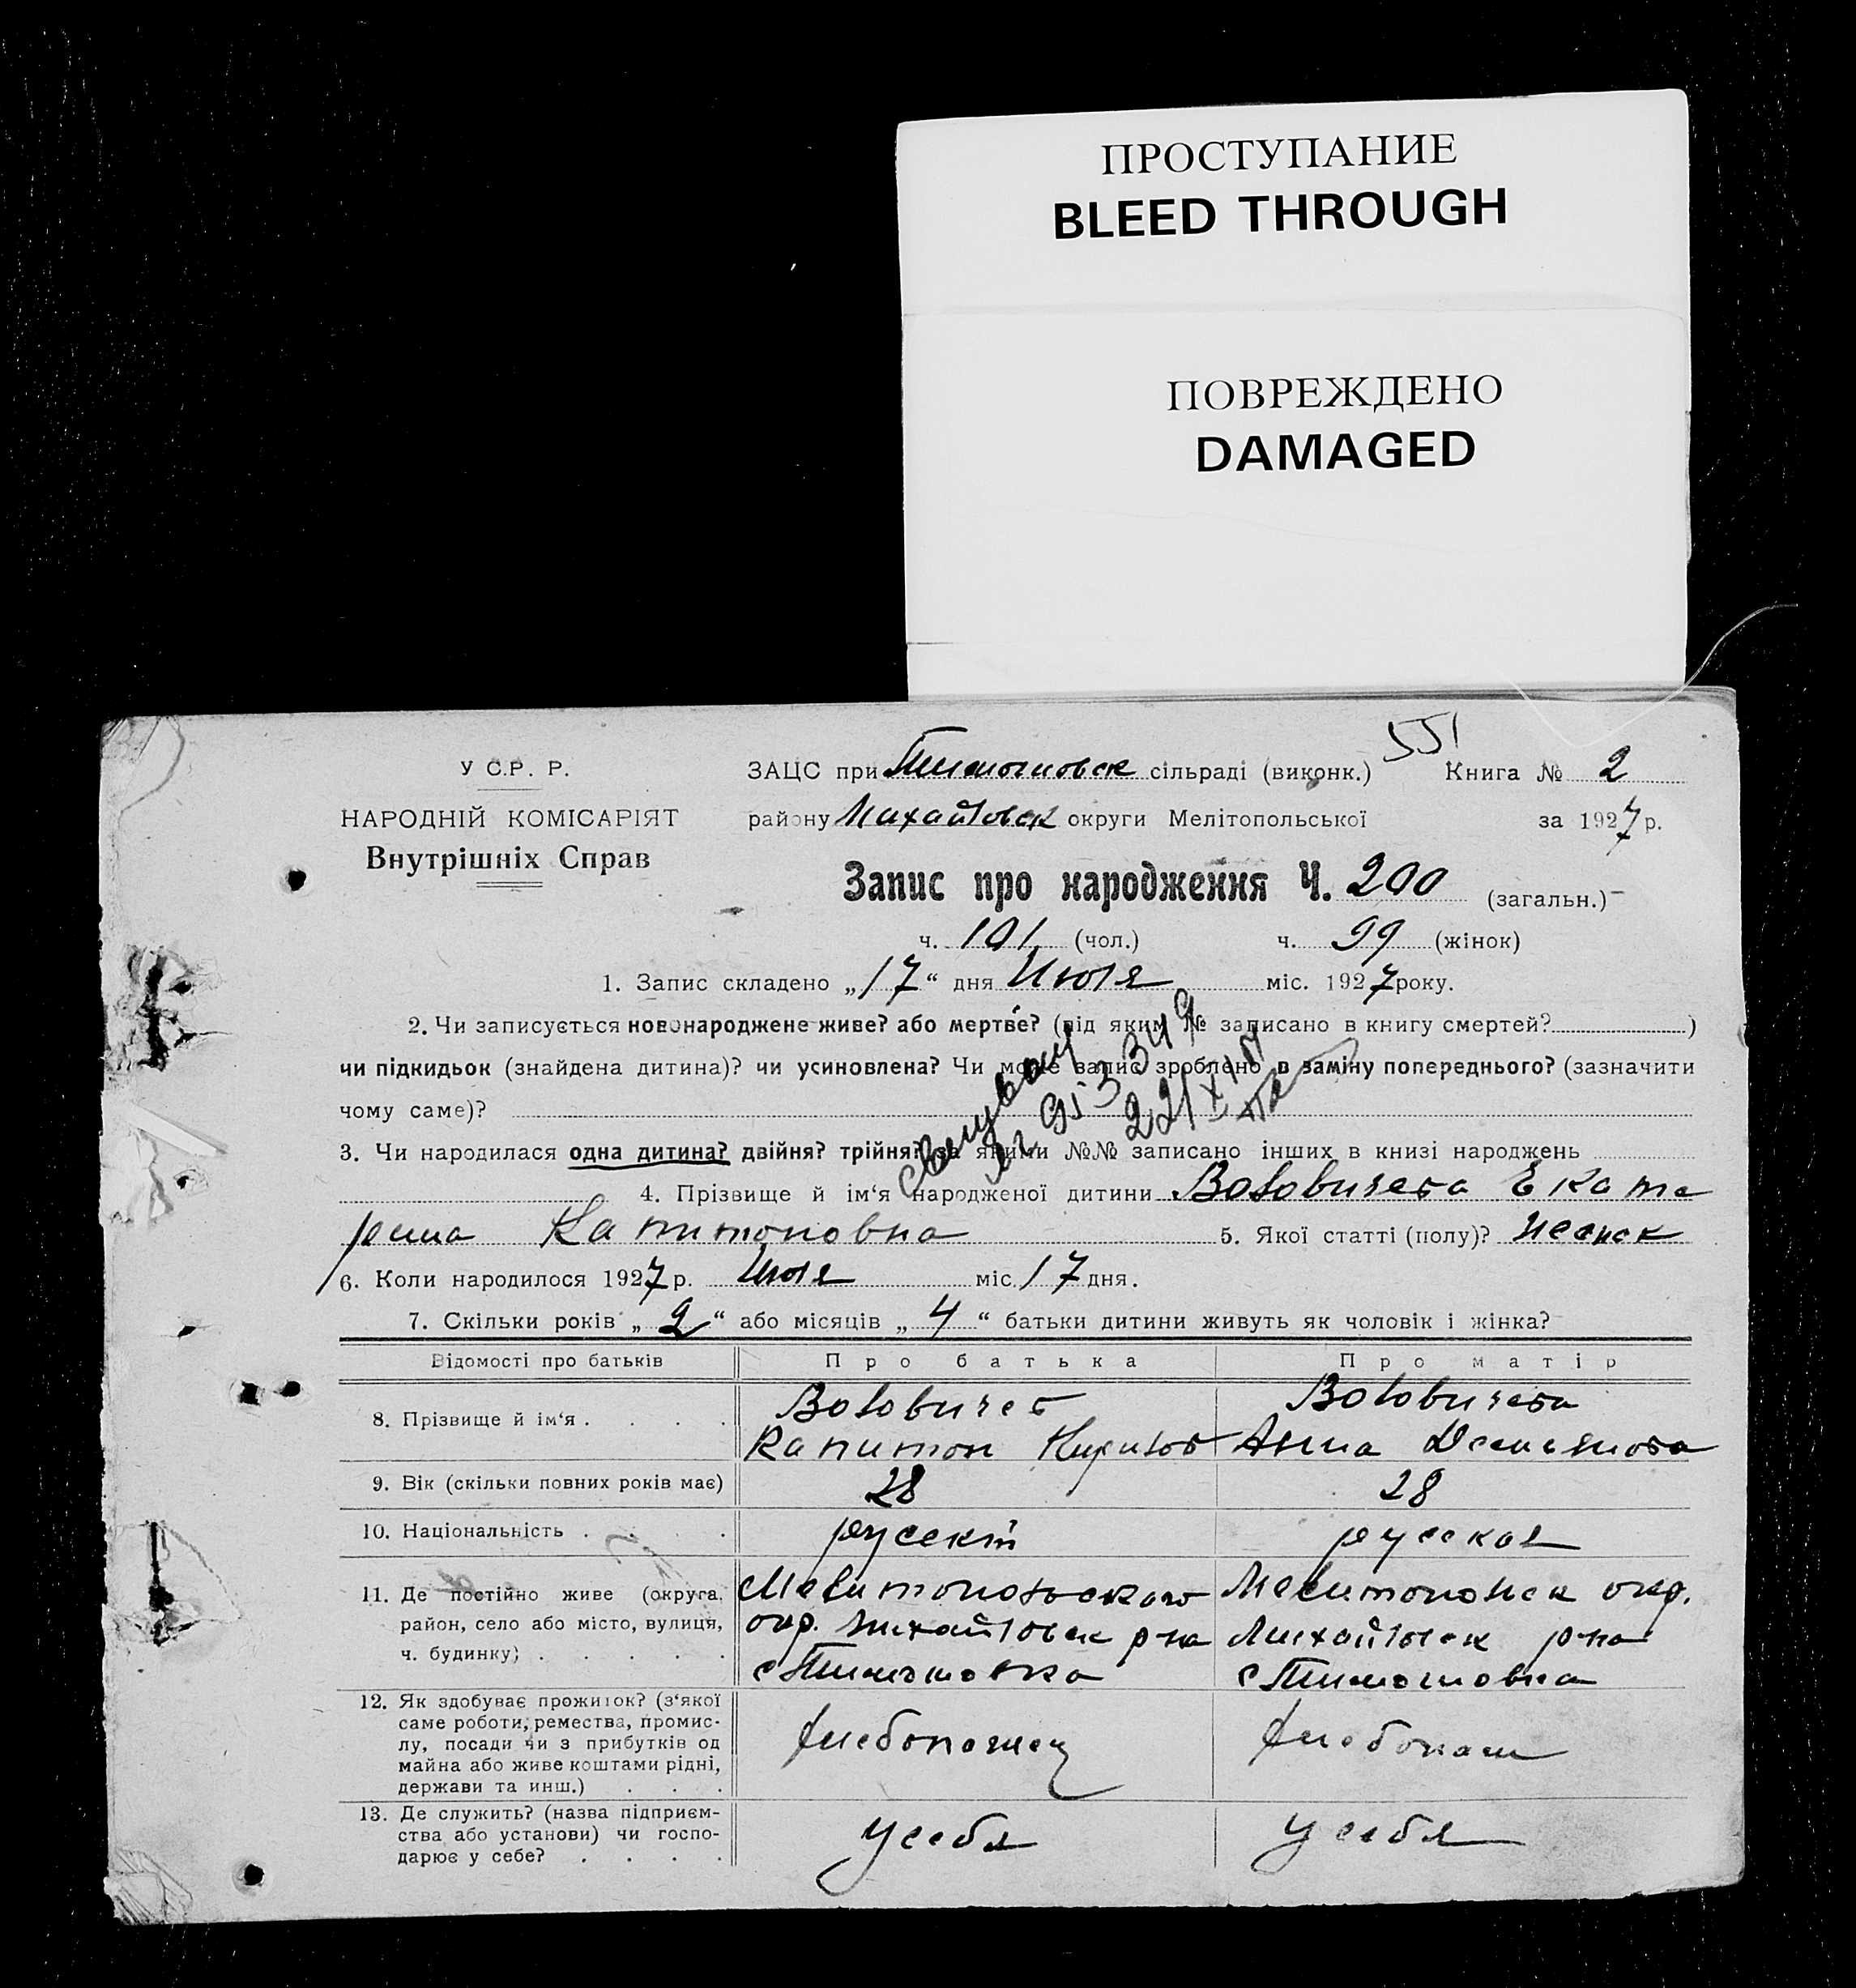 ПРОСТУПАНИЕ
BLEED THROUGH
ПОВРЕЖДЕНО
DAMAGED
551
У С.Р. Р.
НАРОДНІЙ КОМІСАРІЯТ
Внутрішніх Справ
ЗАЦС при Тимошовск сільраді (виконк.) Книга № 2
району Михайловск округи Мелітопольської за 1927 р.
Запис про народження Ч. 200 (загальн.)
ч. 101 (чол.) ч. 99 (жінок)
1. Запис складено „17“ дня Июля міс. 1927 року.
2. Чи записується новонароджене живе? або мертве? (під яким № записано в книгу смертей? )
чи підкидьок (знайдена дитина)? чи усиновлена? Чи може запис зроблено в заміну попереднього? (зазначити
чому саме)?
3. Чи народилася одна дитина? двійня? трійня? за якими №№ записано інших в книзі народжень
4. Прізвище й ім'я народженої дитини Воловичева Екате
рина Капитоновна 5. Якої статті (полу)? женск
6. Коли народилося 1927 р. Июля міс. 17 дня.
7. Скільки років „2“ або місяців „4“ батьки дитини живуть як чоловік і жінка?
Відомості про батьків Про батька Про матір
8. Прізвище й ім'я . . . . Воловичев Воловичева
Капитон Кирилов Анна Демьянова
9. Вік (скільки повних років має) 28 28
10. Національність . . . . русский русская
11. Де постійно живе (округа, район, село або місто, вулиця, ч. будинку) . . . . .
Мелитопольского окр. Михайловск р-на с Тимошовка
Мелитопольск окр. Михайловск р-на с Тимошовка
12. Як здобуває прожиток? (з'якої саме роботи, ремества, промислу, посади чи з прибутків од майна або живе коштами рідні, держави та инш.) . . .
хлебопашец хлебопаш
13. Де служить? (назва підприємства або установи) чи господарює у себе? . . . .
у себя у себя